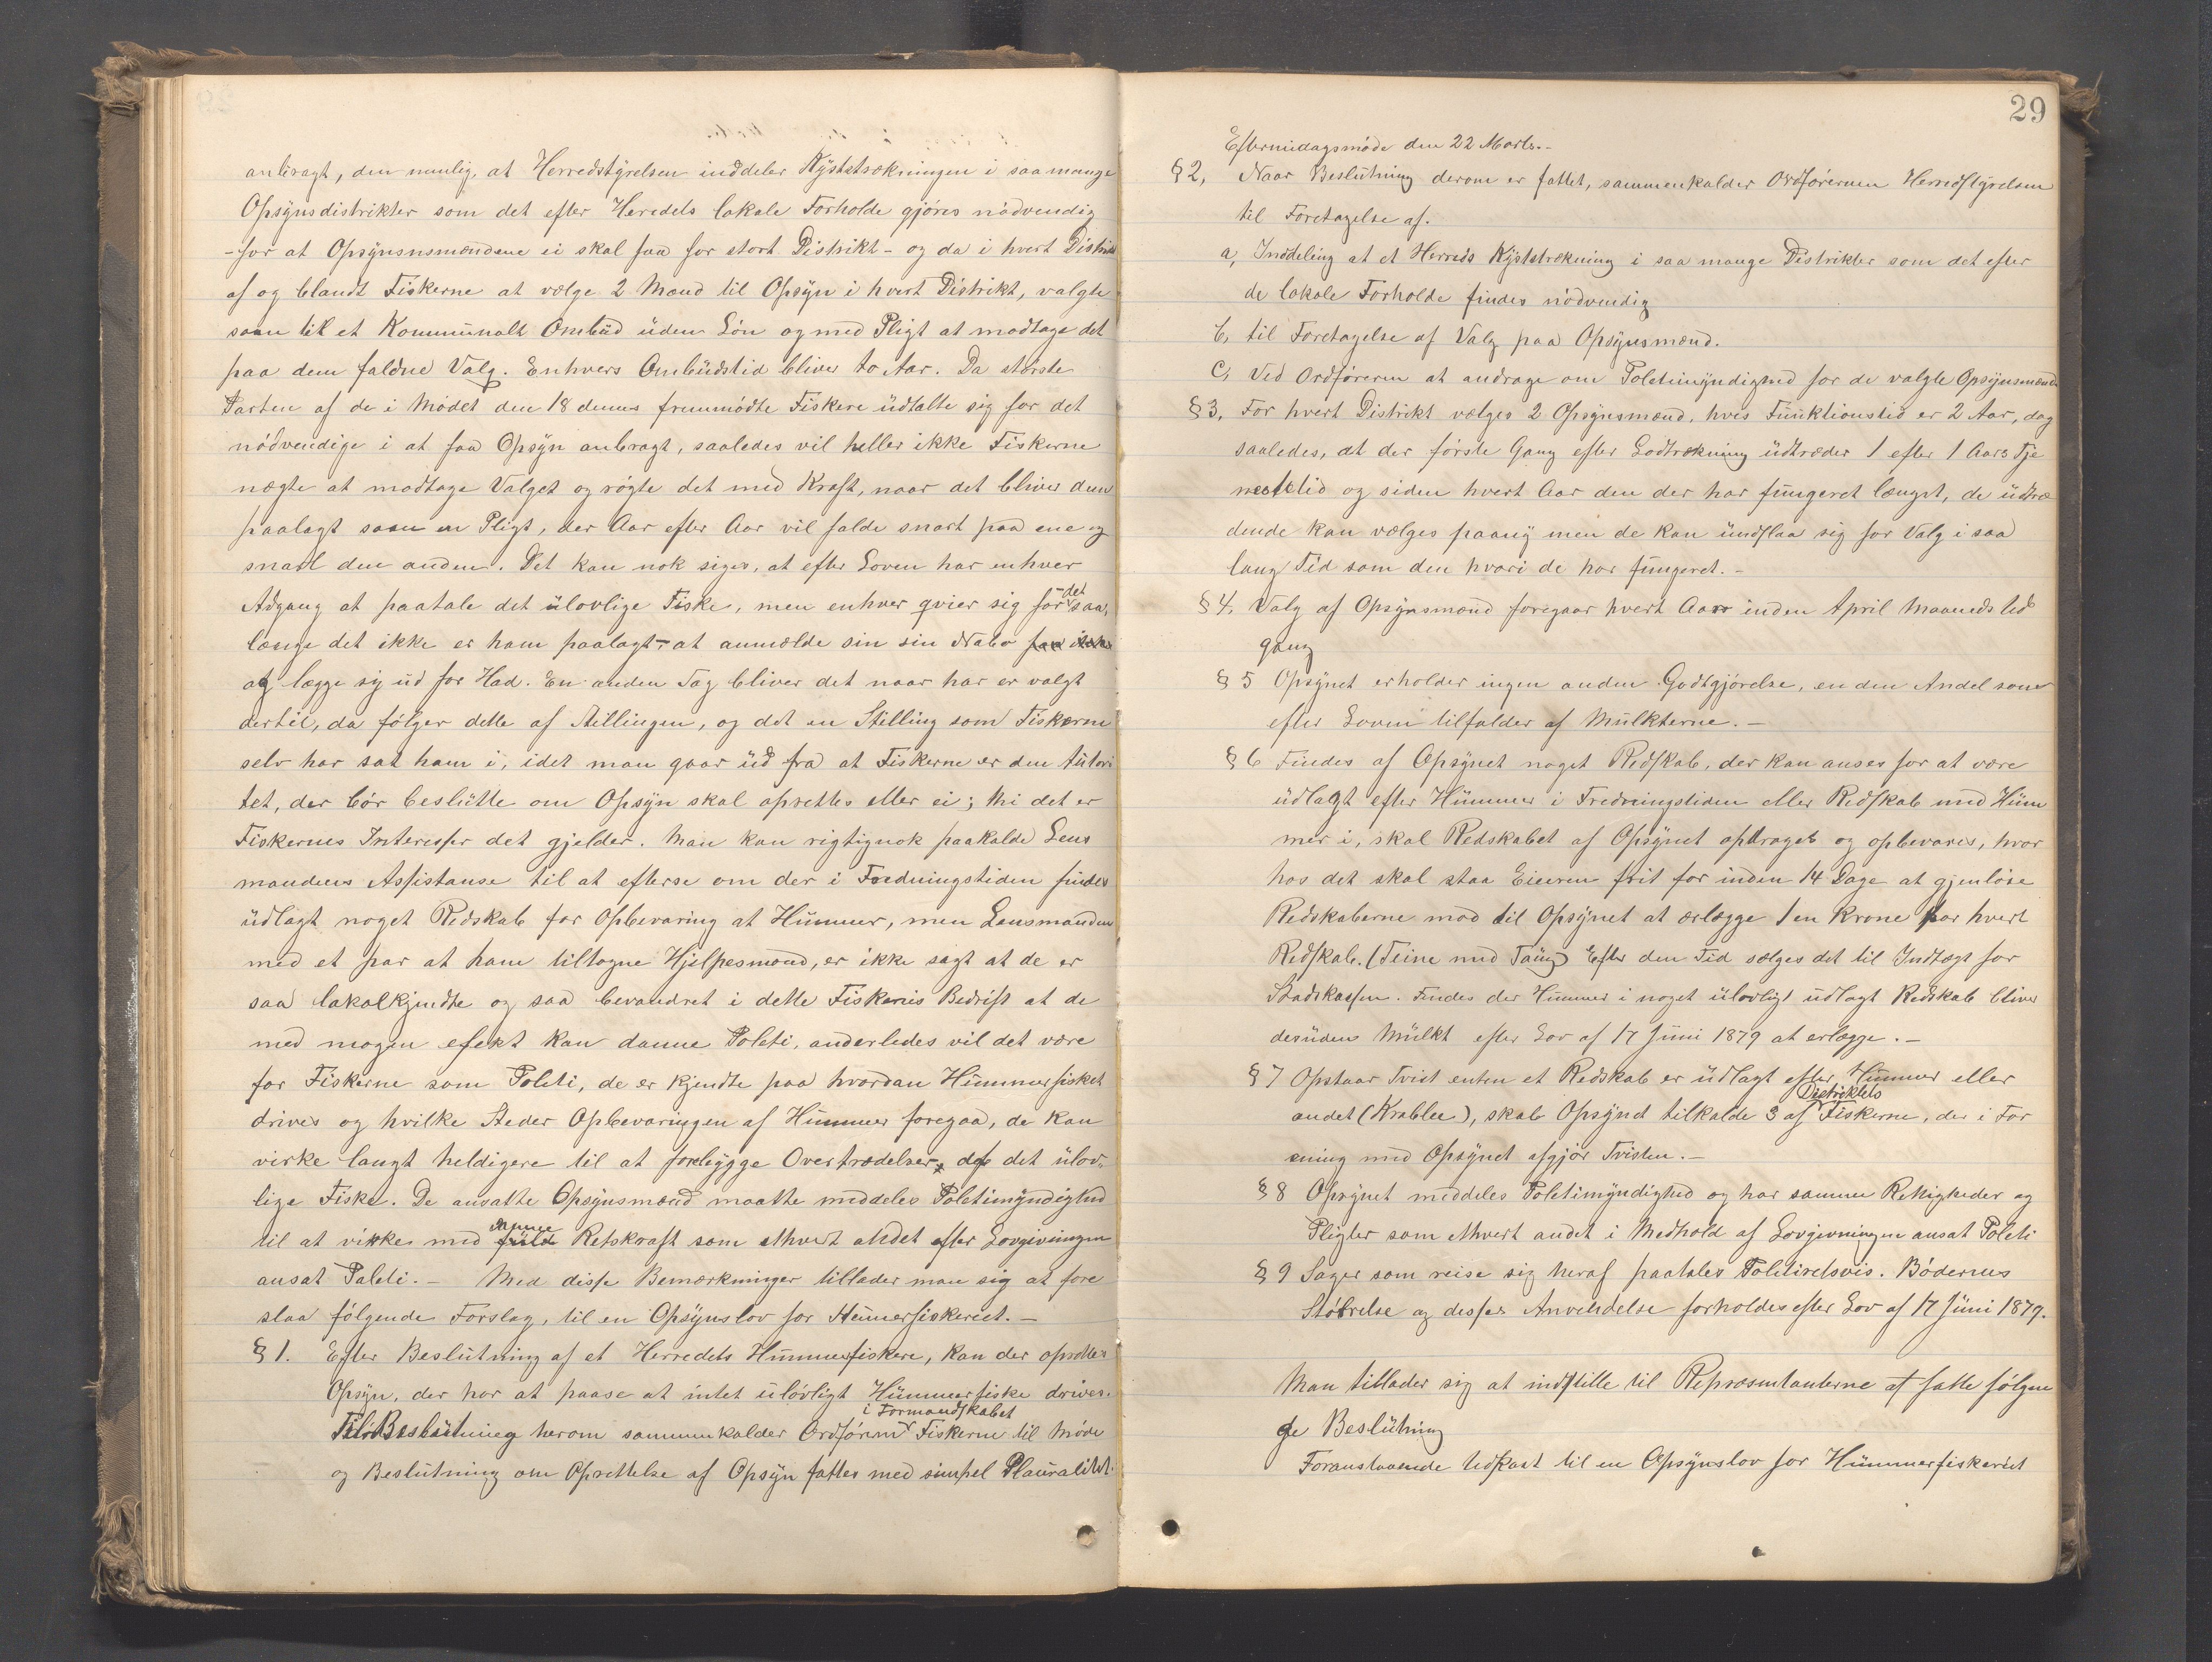 anbragt, den nemlig, at Herredstyrelsen inddeler Kyststrækningen i saa mange
Opsynsdistrikter som det efter Heredets lokale Forholde gjøres nødvendig
- for at Opsynsnsmændene ei skal faa for stort Distrikt - og da i hvert Distrikt
af og blandt Fiskerne at vælge 2 Mænd til Opsyn i hvert Distrikt, valgte
saan til et Kommunalt Ombud uden Løn og med Pligt at modtage det
paa dem faldne Valg. Enhvers Ombudstid bliver to Aar. Da største
Parten af de i Mødet den 18 dennes fremmødte Fiskere udtalte sig for det
nødvendige i at faa Opsyn anbragt, saaledes vil heller ikke Fiskerne
nægte at modtage Valget og røgte det med Kraft, naar det bliver dem
paalagt saan en Pligt, der Aar efter Aar vil falde snart paa ene og
snart den anden. Det kan nok siges, at efter Loven har enhver
Adgang at paatale det ulovlige Fiske, men enhver qvier sig for - det saa
længe det ikke er ham paalagt - at anmelde sin sin Nabo
og lægge sig ud for Had. En anden Sag bliver det naar han er valgt
dertil, da følger dette af Stillingen, og det en Stilling som Fiskerne
selv har sat ham i, idet man gaar ud fra at Fiskerne er den Autori
tet, der bør beslutte om Opsyn skal oprettes eller ei; thi det er
Fiskernes Interesser det gjelder. Man kan rigtignok paakalde Lens
mandens Assistanse til at efterse om der i Fredningstiden findes
udlagt noget Redskab for Opbevaring at Hummer, men Lensmanden
med et par at ham tiltagne Hjelpesmænd, er ikke sagt at de er
saa lokalkjendte og saa bevandret i dette Fiskeris Bedrift at de
med nogen efekt kan danne Politi, anderledes vil det være
for Fiskerne som Politi, de er kjendte paa hvordan Hummerfisket
drives og hvilke Steder Opbevaringen af Hummer foregaa, de kan
virke langt heldigere til at forebygge Overtrædelser, af det ulov
lige Fiske. De ansatte Opsynsmænd maatte meddeles Politimyndighed
til at virke med samme fuld Retskraft som ethvert andet efter Lovgivningen
ansat Politi. - Med disse Bemærkninger tillader man sig at fore
slaa følgende Forslag, til en Opsynslov for Hummerfiskeriet. -
§ 1. Efter Beslutning af et Herredets Hummerfiskere, kan der oprettes
Opsyn, der har at paase at intet ulovligt Hummerfiske drives.
Til Beslutning herom sammenkalder Ordføren i Formandskabet Fiskerne til Møde
og Beslutning om Oprettelse af Opsyn fattes med simpel Plauralitet.
29
Eftermidagsmøde den 22 Marts. -
§ 2, Naar Beslutning derom er fattet, sammenkalder Ordføreren Herredstyrelsen
til Foretagelse af.
a, Inddeling at et Herreds Kyststrækning i saa mange Distrikter som det efter
de lokale Forholde findes nødvendig
b, til Foretagelse af Valg paa Opsynsmænd.
C, Ved Ordføreren at andrage om Politimyndighed for de valgte Opsynsmænd
§ 3, For hvert Distrikt vælges 2 Opsynsmænd, hvis Funktionstid er 2 Aar, dog
saaledes, at der første Gang efter Lodtrækning udtræder 1 efter 1 Aars Tje
nestetid og siden hvert Aar den der har fungeret længst, de udtræ
dende kan vælges paany men de kan undslaa sig for Valg i saa
lang Tid som den hvori de har fungeret. -
§ 4, Valg af Opsynsmænd foregaar hvert Aar inden April Maaneds Ud
gang
§ 5 Opsynet erholder ingen anden Godtgjørelse, en den Andel som
efter Loven tilfalder af Mulkterne. -
§ 6 Findes af Opsynet noget Redskab, der kan anses for at være
udlagt efter Hummer i Fredningstiden eller Redskab med Hum
mer i, skal Redskabet af Opsynet optraget og opbevares, hvor
hos det skal staa Eieren frit for inden 14 Dage at gjenløse
Redskaberne mod til Opsynet at erlægge 1 en Krone for hvert
Redskab. (Teine med Taug) Efter den Tid sælges det til Indtægt for
Stadskassen. Findes der Hummer i noget ulovligt udlagt Redskab bliver
desuden Mulkt efter Lov af 17 Juni 1879 at erlægge. -
§ 7 Opstaar Tvist enten et Redskab er udlagt efter Hummer eller
andet (Krabbe), skab Opsynet tilkalde 3 af Distriktets Fiskerne, der i For
ening med Opsynet afgjør Tvisten. -
§ 8 Opsynet meddeles Politimyndighed og har samme Rettigheder og
Pligter som ethvert andet i Medhold af Lovgivningen ansat Politi
§ 9 Sager som reise sig heraf paatales Politiretsvis. Bødernes
Størrelse og desses Anvendelse forholdes efter Lov af 17 Juni 1879.
Man tillader sig at indstille til Repræsentanterne at fatte følgen
de Beslutning
Foranstaaende Udkast til en Opsynslov for Hummerfiskeriet